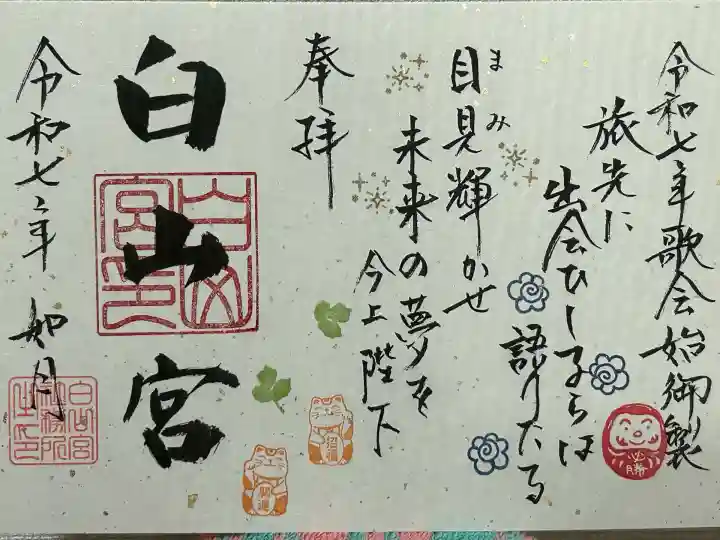 令和七年歌会始御製
旅先に
出会ひし子らは
語りたる
まみ
目見輝かせ
未来の夢を
今上陛下
奉拝
白山宮
白山
宮印
令和七年 如月
白山宮
社務所
之印
必勝
開運